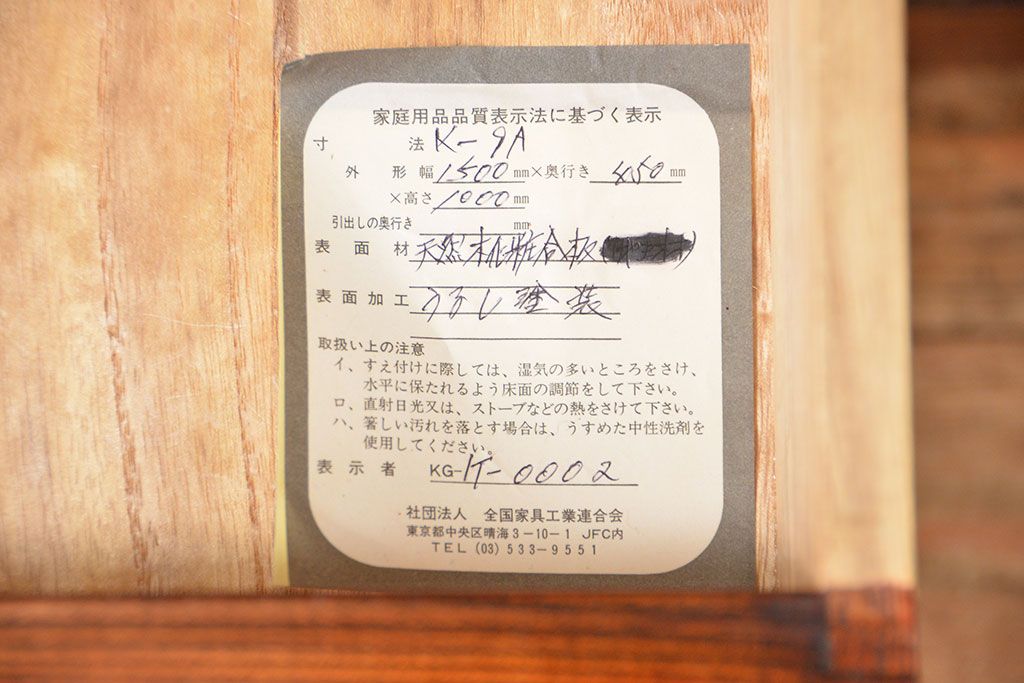 家庭用品品質表示法に基づく表示
寸 法 K-9A
外 形 幅 1500 mm×奥行き 450 mm
×高さ 1000 mm
引出しの奥行き mm
表 面 材 天然木化粧合板
表面加工 うるし塗装
取扱い上の注意
イ、すえ付けに際しては、湿気の多いところをさけ、
水平に保たれるよう床面の調節をして下さい。
ロ、直射日光又は、ストーブなどの熱をさけて下さい。
ハ、著しい汚れを落とす場合は、うすめた中性洗剤を
使用してください。
表 示 者 KG-IT-0002
社団法人 全国家具工業連合会
東京都中央区晴海3-10-1 JFC内
TEL (03) 533-9551